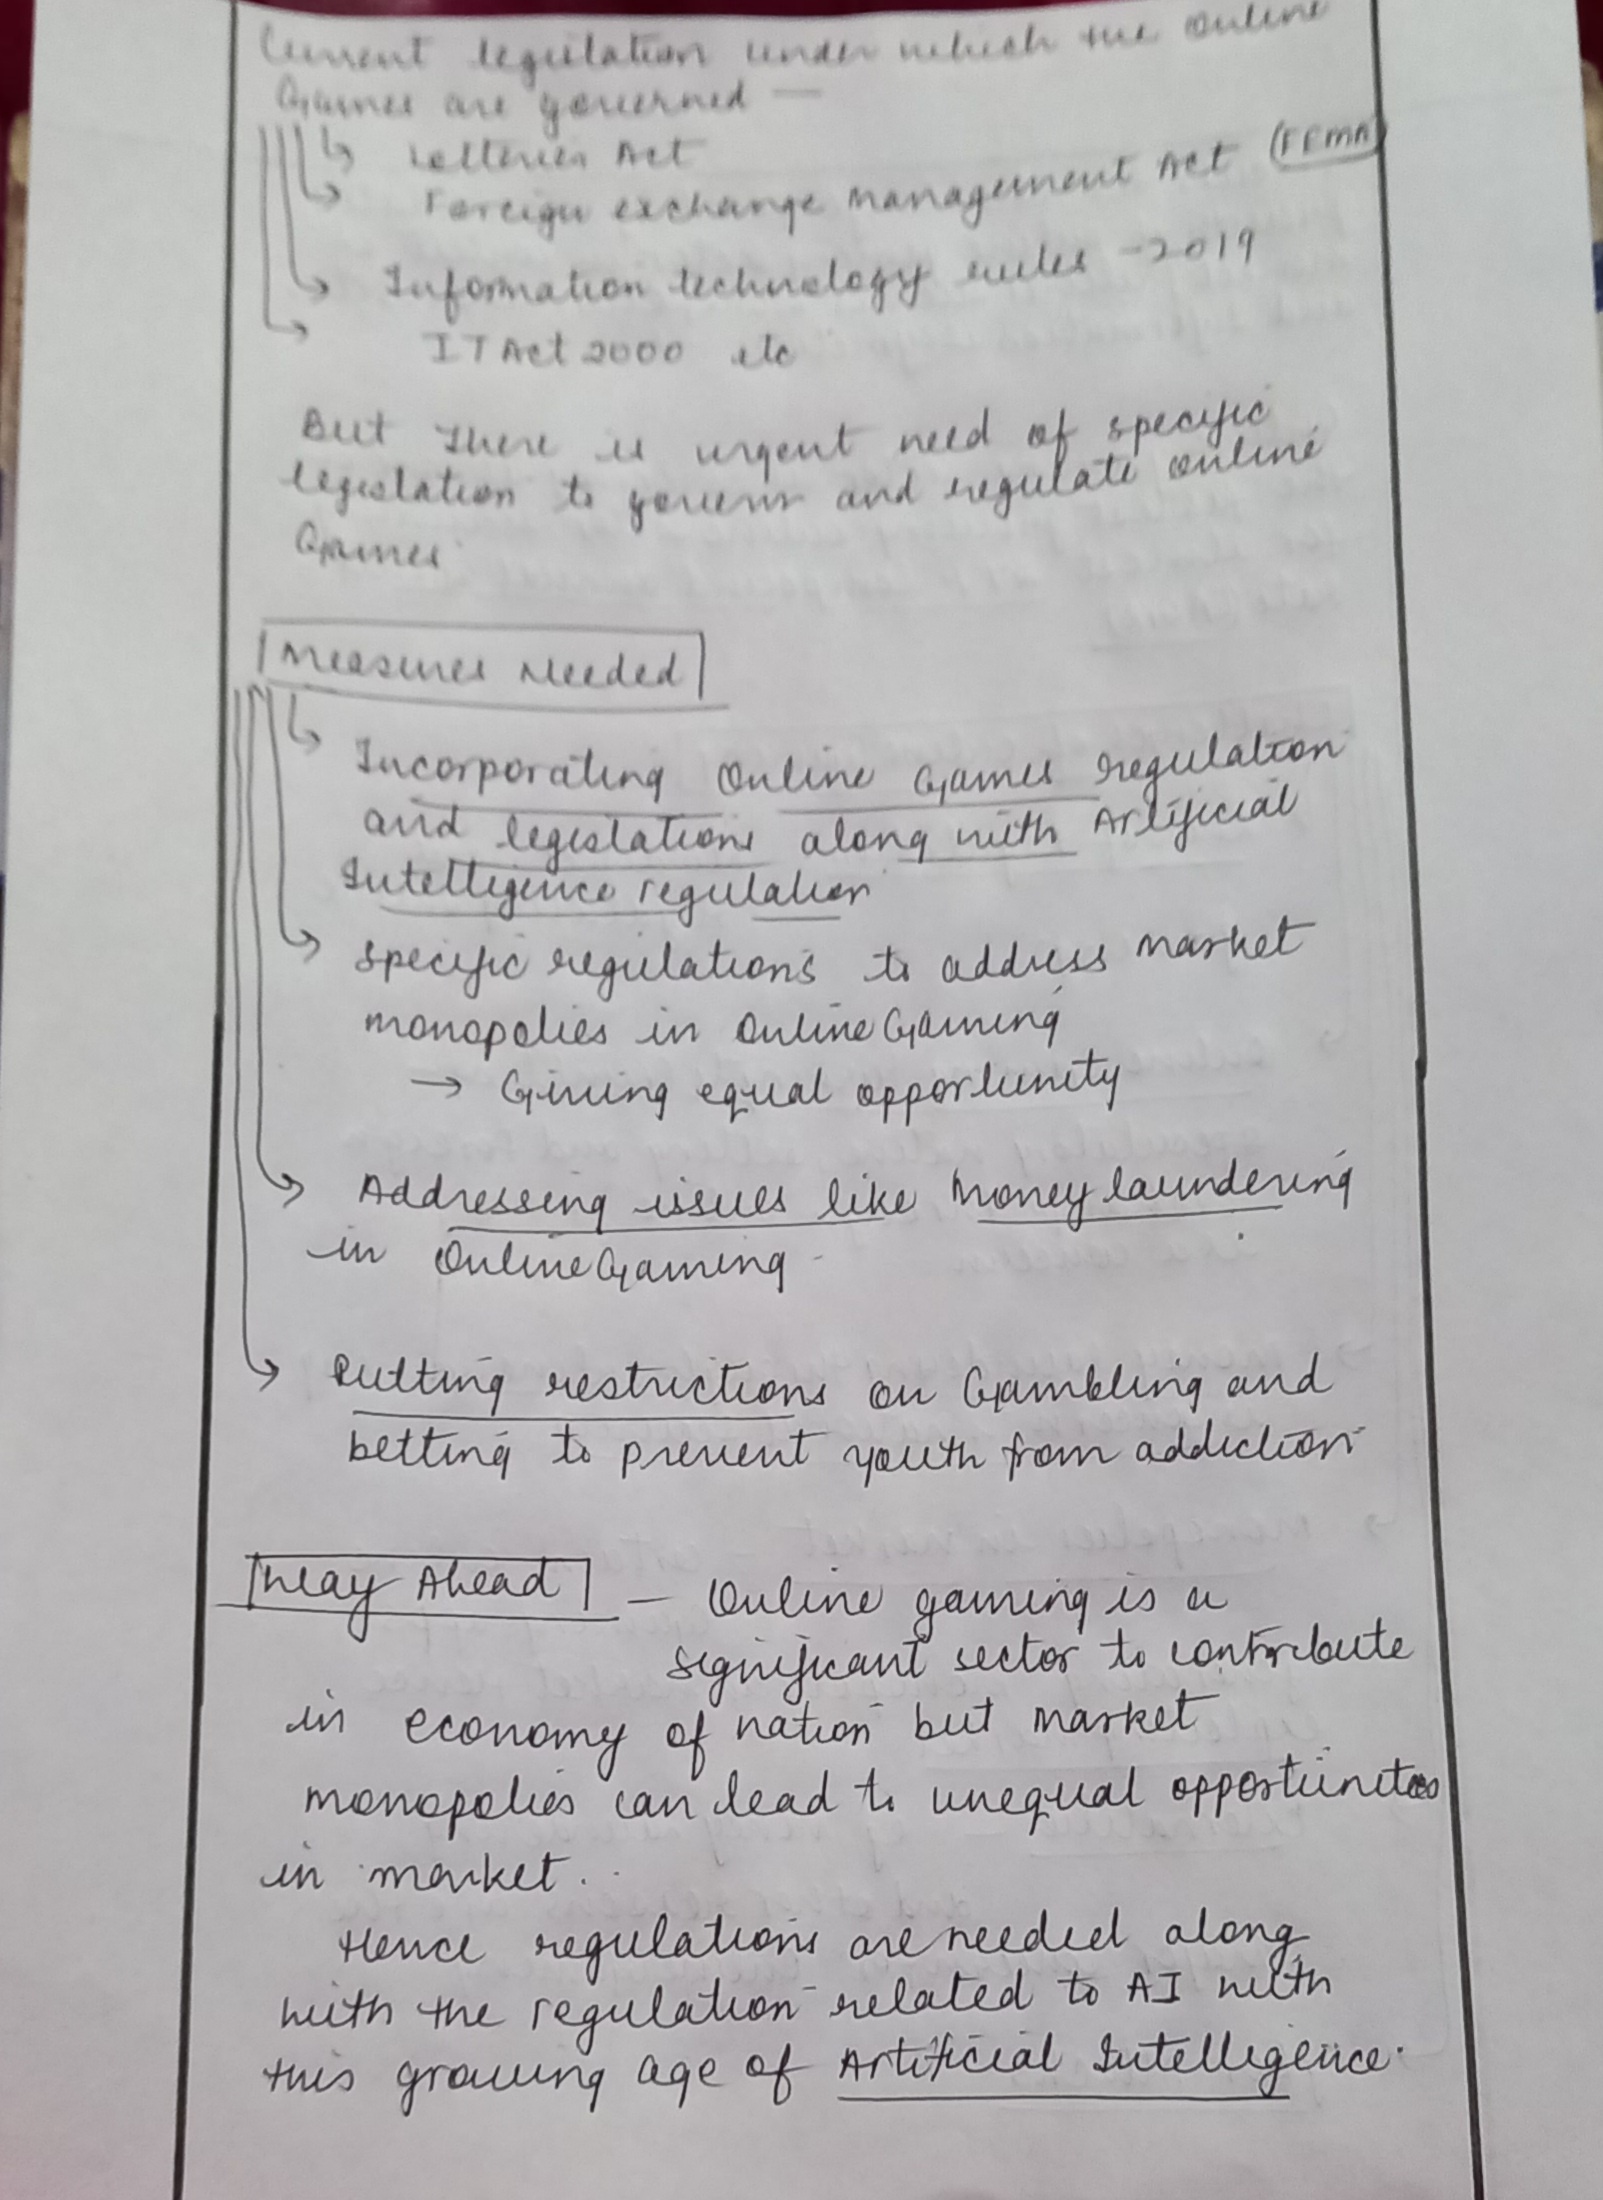 Current legislation under which the online
Games are governed —
Lotteries Act
Foreign exchange management Act (FEMA)
Information technology rules - 2019
IT Act 2000 etc
But there is urgent need of specific
legislation to govern and regulate online
Games
Measures Needed
Incorporating Online Games regulation
and legislations along with Artificial
Intelligence regulation
specific regulations to address market
monopolies in Online Gaming
→ Giving equal opportunity
Addressing issues like Money laundering
in Online Gaming
Putting restrictions on Gambling and
betting to prevent youth from addiction
Way Ahead — Online gaming is a
significant sector to contribute
in economy of nation but market
monopolies can lead to unequal opportunities
in market.
Hence regulations are needed along
with the regulation related to AI with
this growing age of Artificial Intelligence.